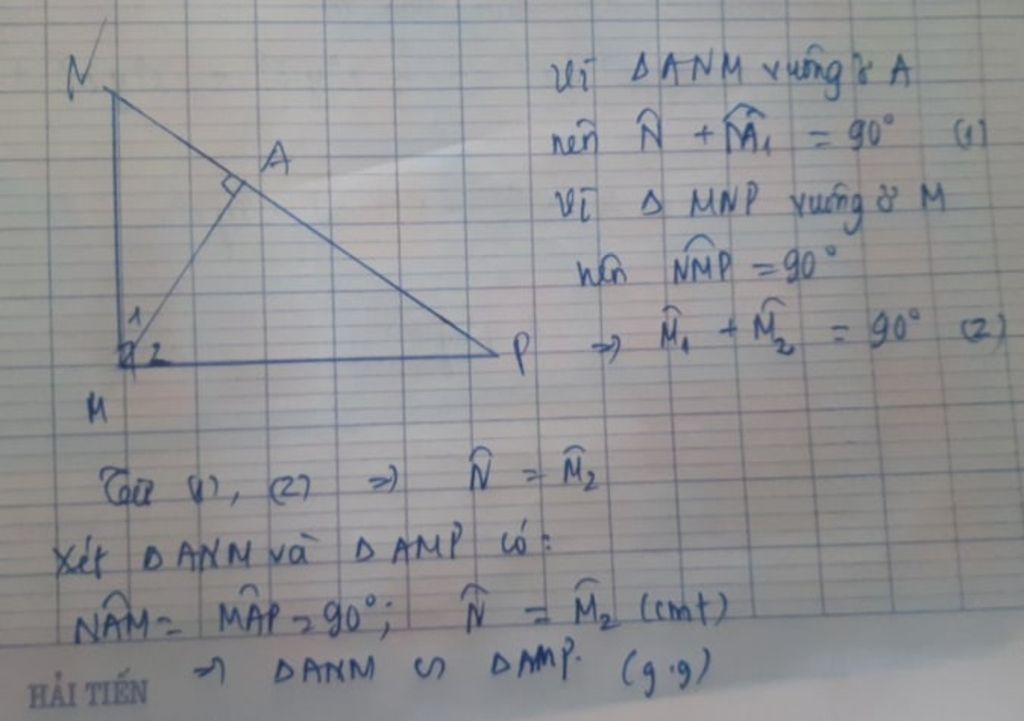 N
A
1
2
P
M
Vì ΔANM vuông ở A
nên N̂ + M̂₁ = 90° (1)
Vì Δ MNP vuông ở M
nên \widehat{NMP} = 90°
=> M̂₁ + M̂₂ = 90° (2)
Từ (1), (2) => N̂ = M̂₂
Xét ΔANM và ΔAMP có:
\widehat{NAM} = \widehat{MAP} = 90°; N̂ = M̂₂ (cmt)
=> ΔANM ∽ ΔAMP. (g.g)
HẢI TIẾN